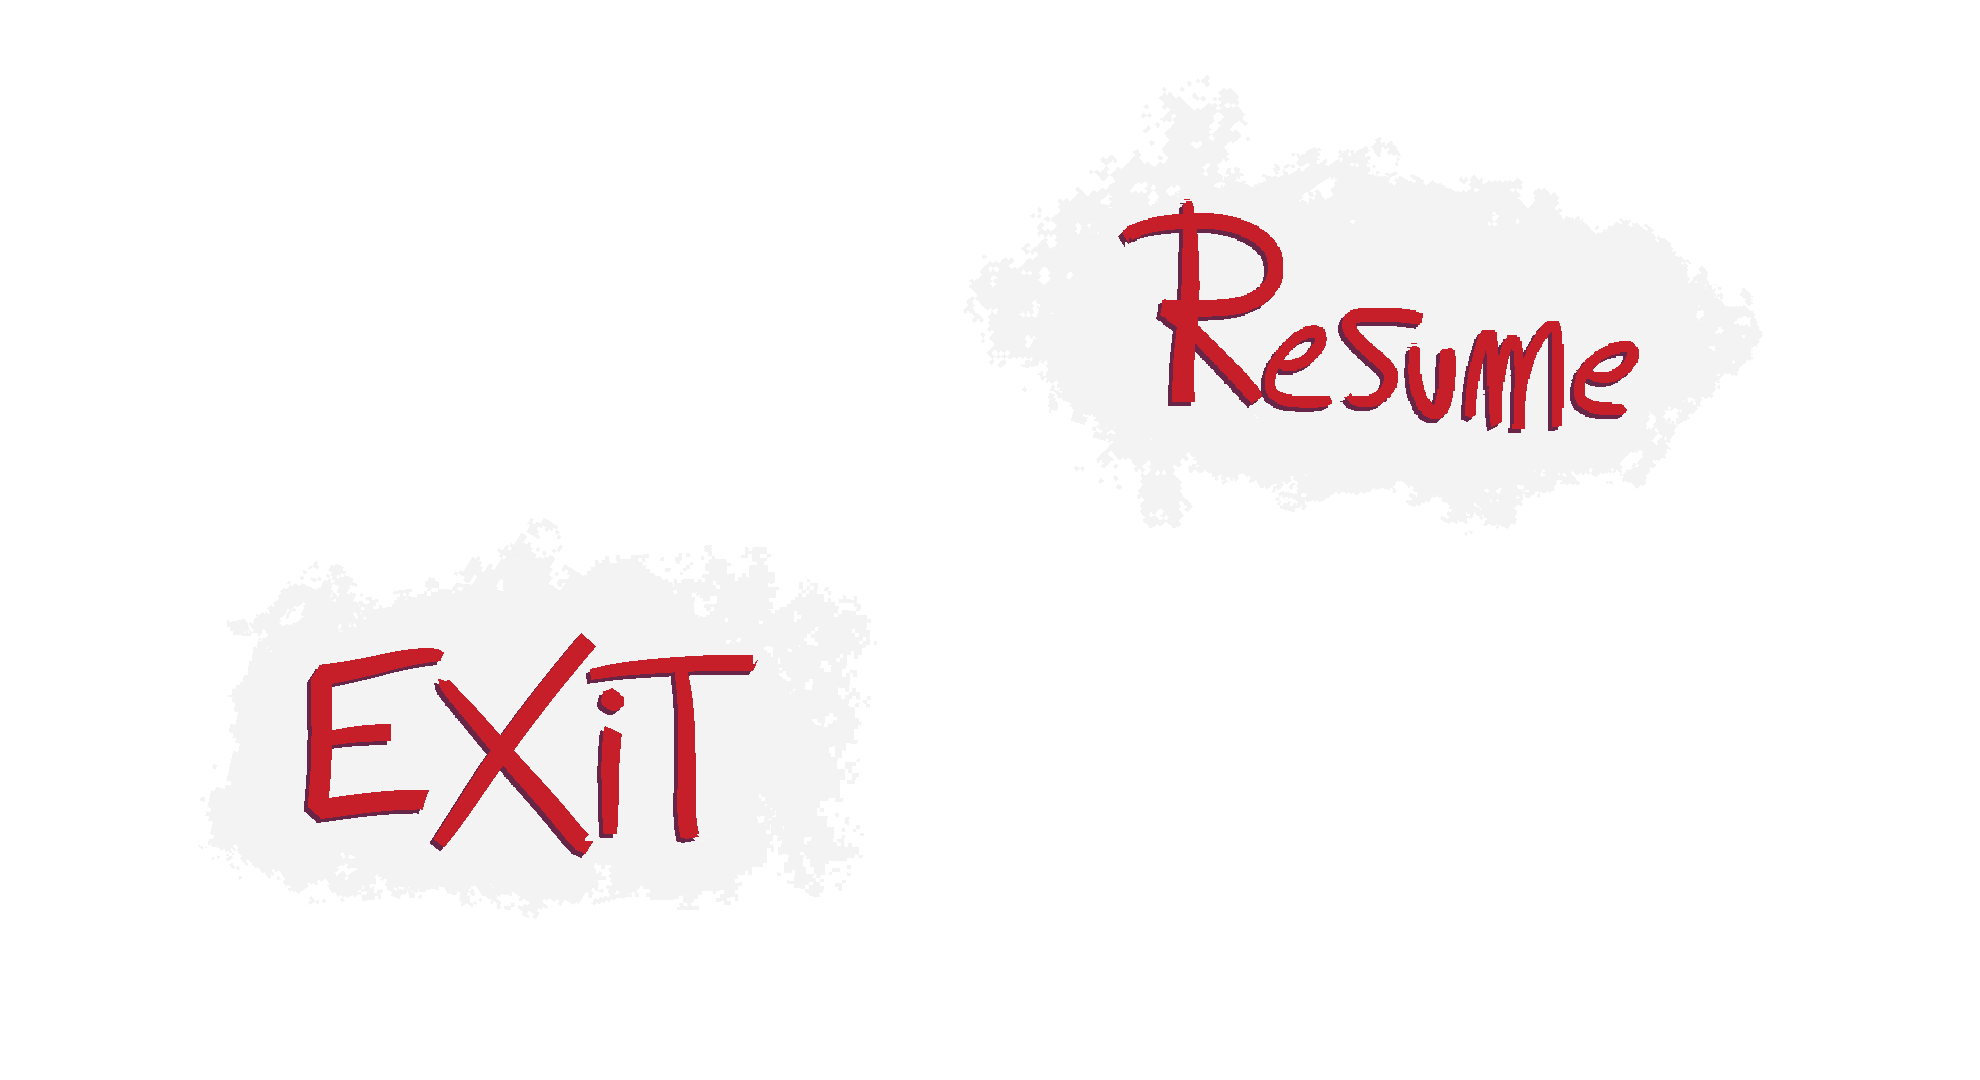 Resume
EXiT